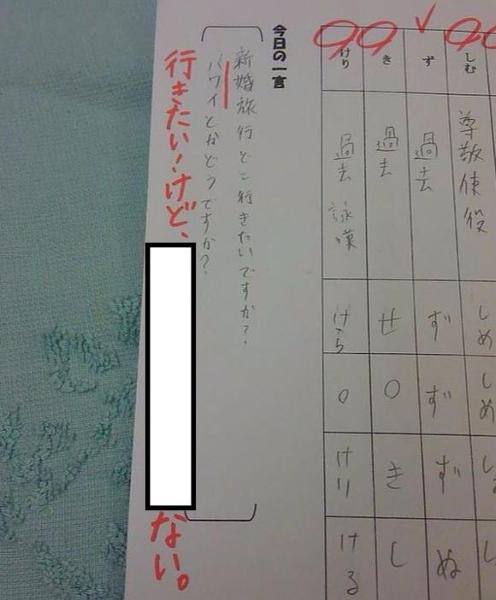 しむ 尊敬使役 しめ しめ
ず 過去 ず ず ず ぬ
き 過去 せ ○ き し
けり 過去 詠嘆 けら ○ けり ける
今日の一言
新婚旅行どこ行きたいですか?
ハワイとかどうですか?
行きたい!けど、
ない。